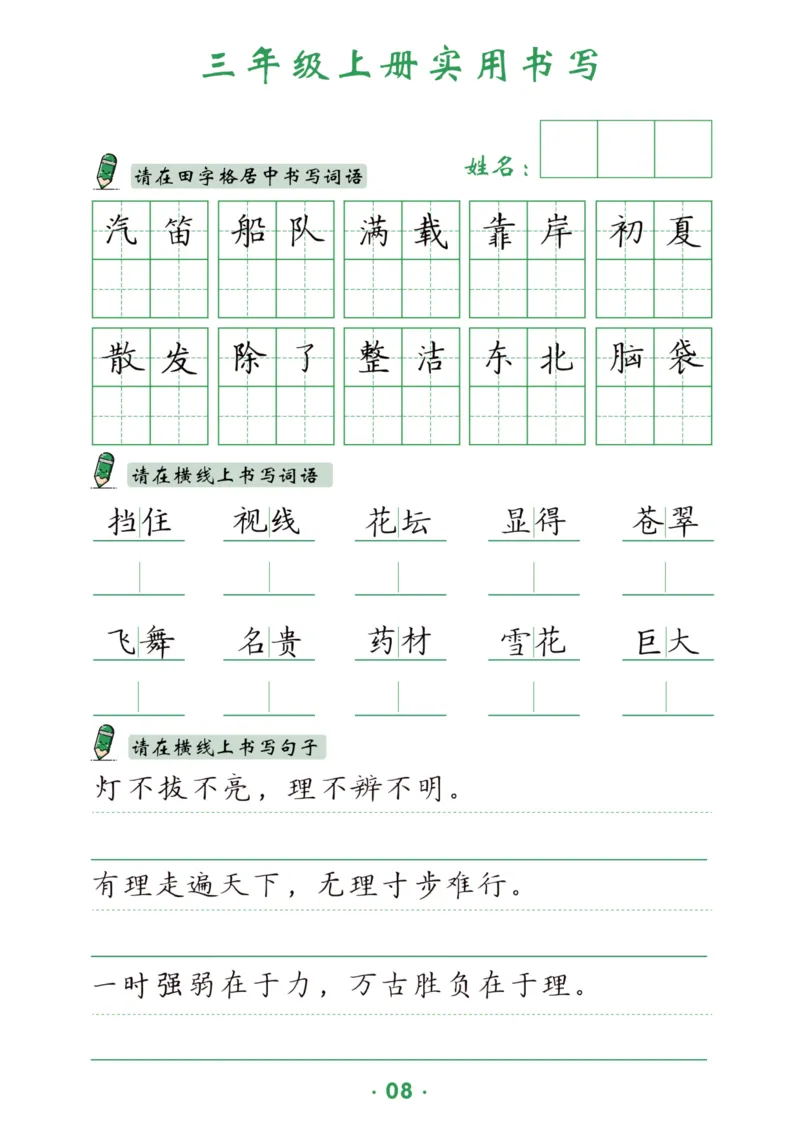 三年级上册实用书写
姓名：
请在田字格居中书写词语
汽笛 船队 满载 靠岸 初夏
散发 除了 整洁 东北 脑袋
请在横线上书写词语
挡住 视线 花坛 显得 苍翠
飞舞 名贵 药材 雪花 巨大
请在横线上书写句子
灯不拔不亮，理不辨不明。
有理走遍天下，无理寸步难行。
一时强弱在于力，万古胜负在于理。
·08·